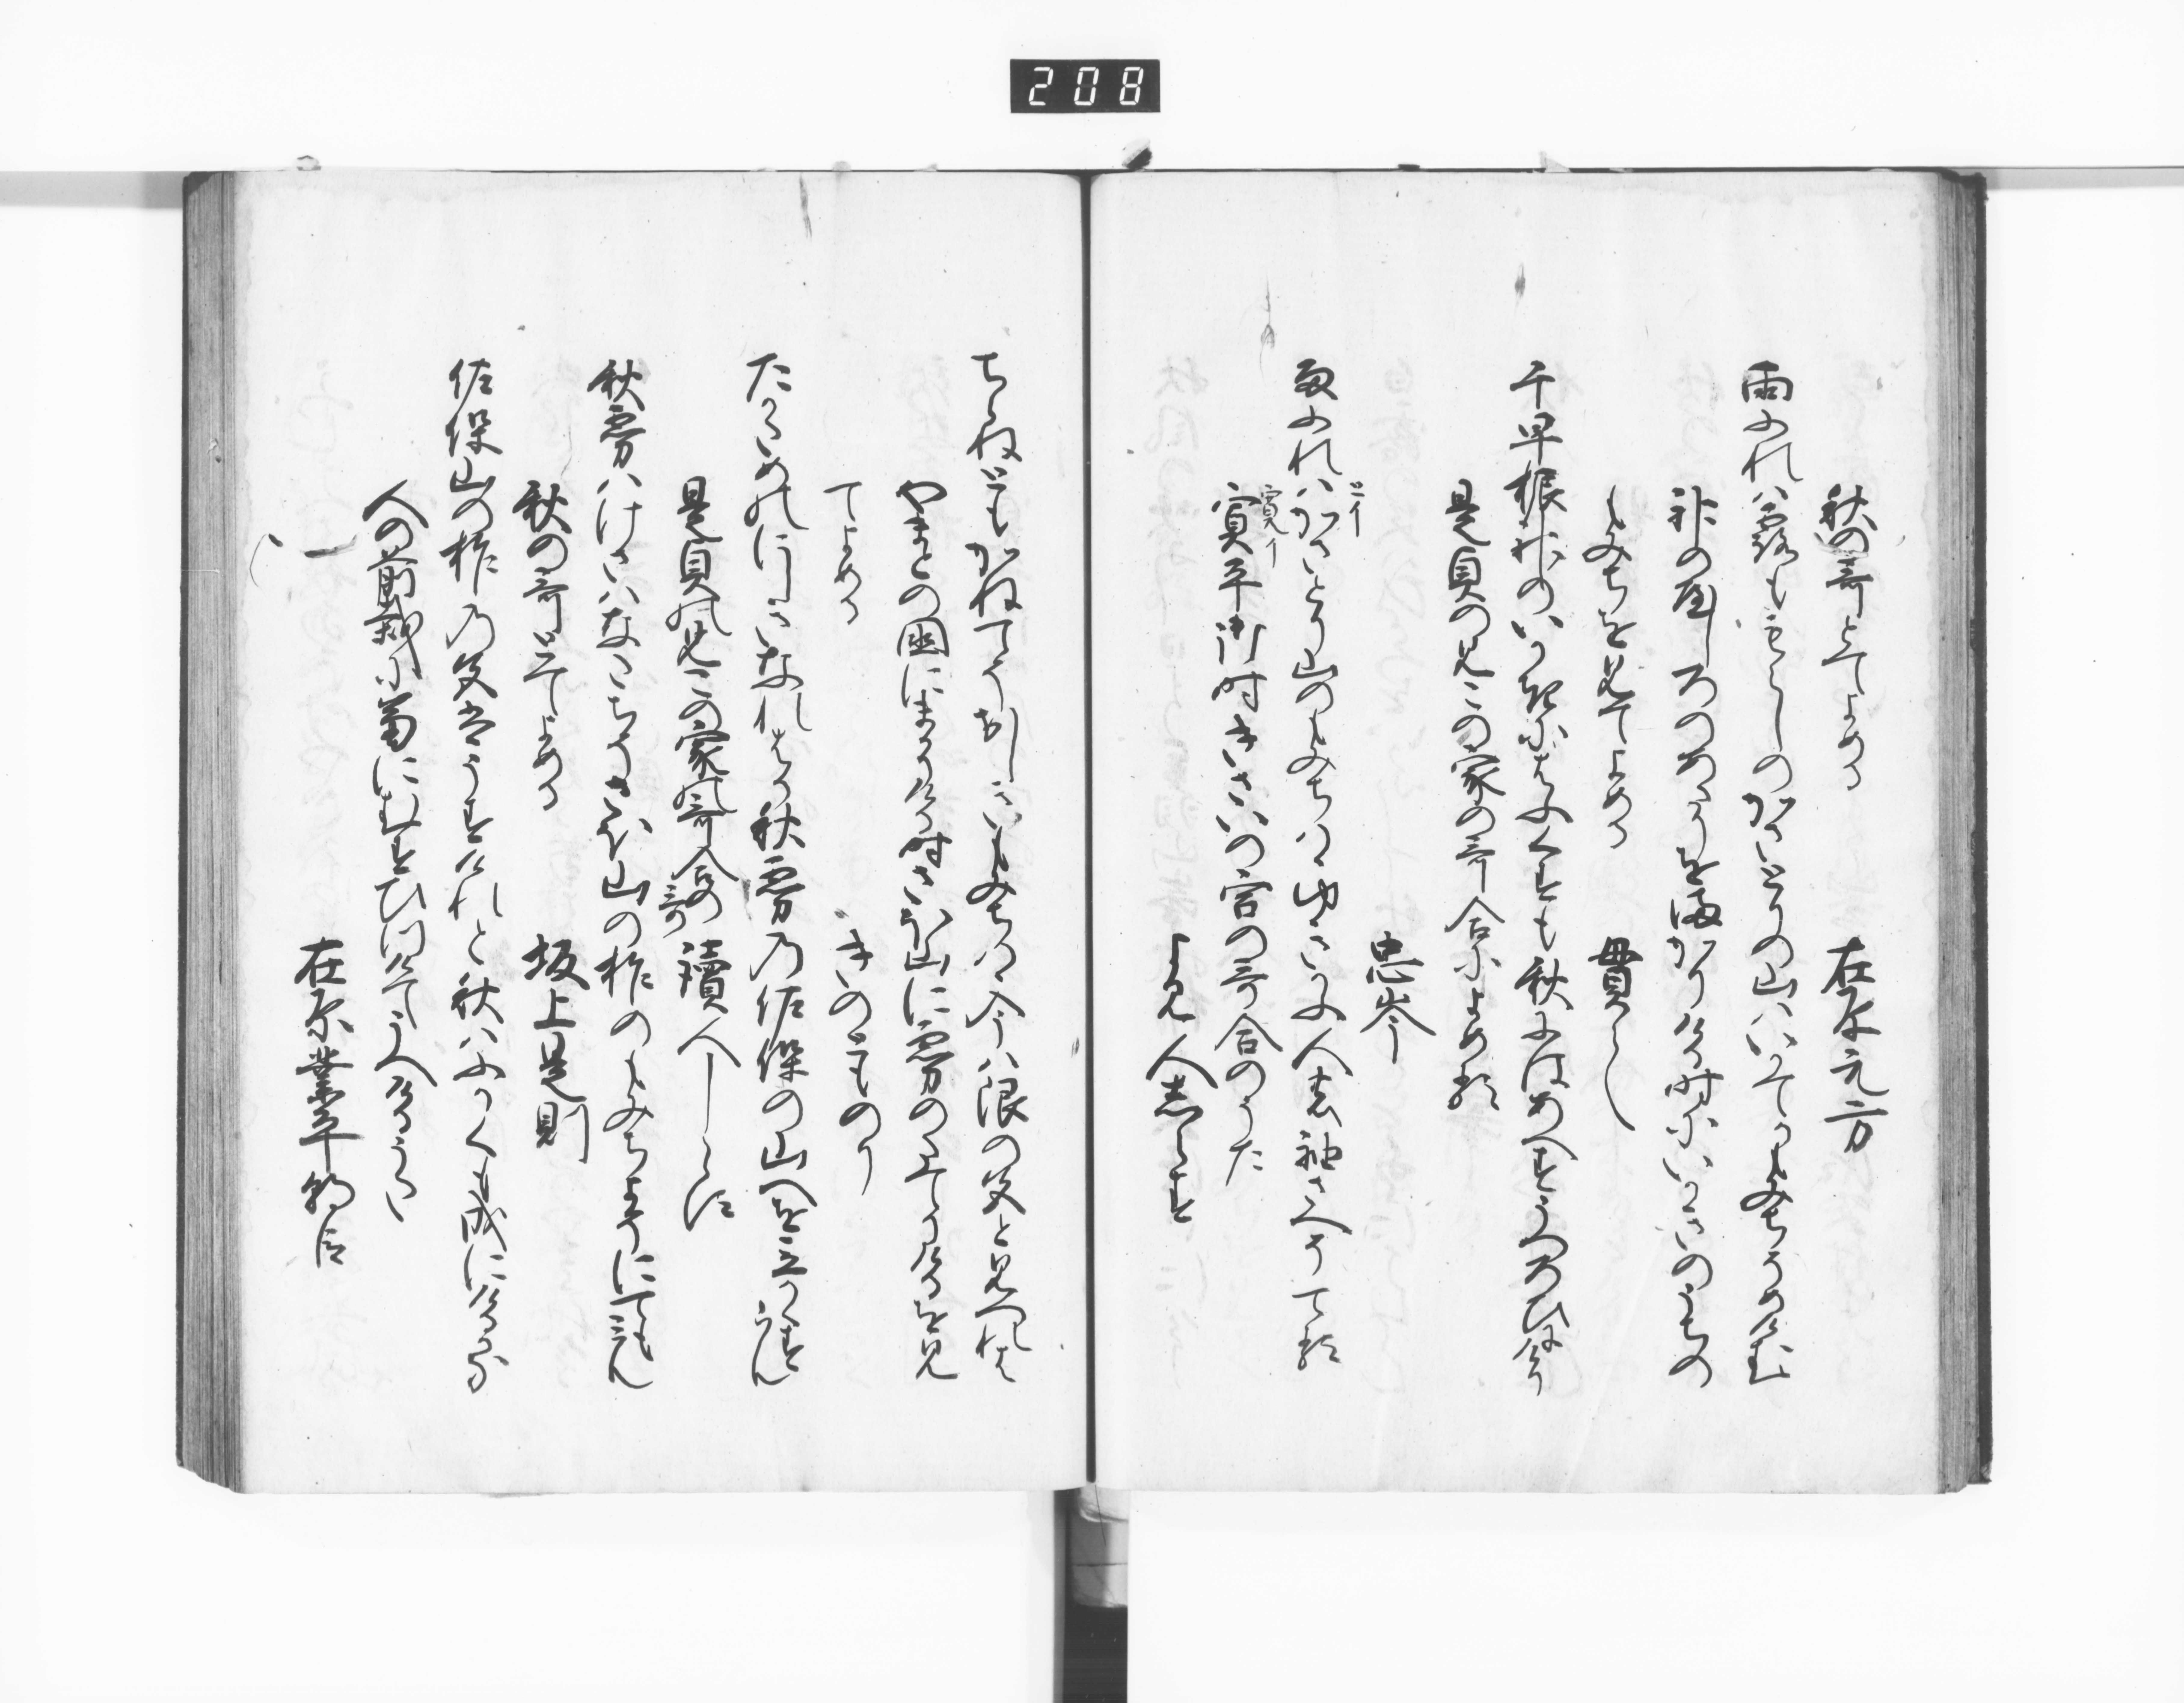 208
秋の哥とてよめる
在原元方
雨ふれは露ももらしのかさとりの山はいかてかもみちそめけむ
神の屋しろのわたりを満かりける時にいかきのうちの
もみちを見てよめる
貫之
千早振神のいかきにはふくすも秋にはあへすうつろひにけり
是貞の見この家の哥合によめる
忠岑
雨ふれはかさとり山のもみちはゝゆきかふ人の袖さへそてる
ニイ
寛イ
寅平御時きさいの宮の哥合のうた
よみ人志らす
ちらねともかねてそおしきもみちはゝ今は限の色と見つれは
やまとの國にまかりける時さほ山に霧のたてりけるを見
てよめる
きのとものり
たかためのにしきなれはか秋霧乃佐保の山へを立かくすらん
是貞の見この家の哥合の
哥
讀人しらす
秋霧はけさはなたちそさほ山の柞のもみちよそにても見ん
秋の哥とてよめる
坂上是則
佐保山の柞乃色はうすけれと秋はふかくも成にける哉
人の前栽に菊にむすひつけてうへけるうた
在原業平朝臣